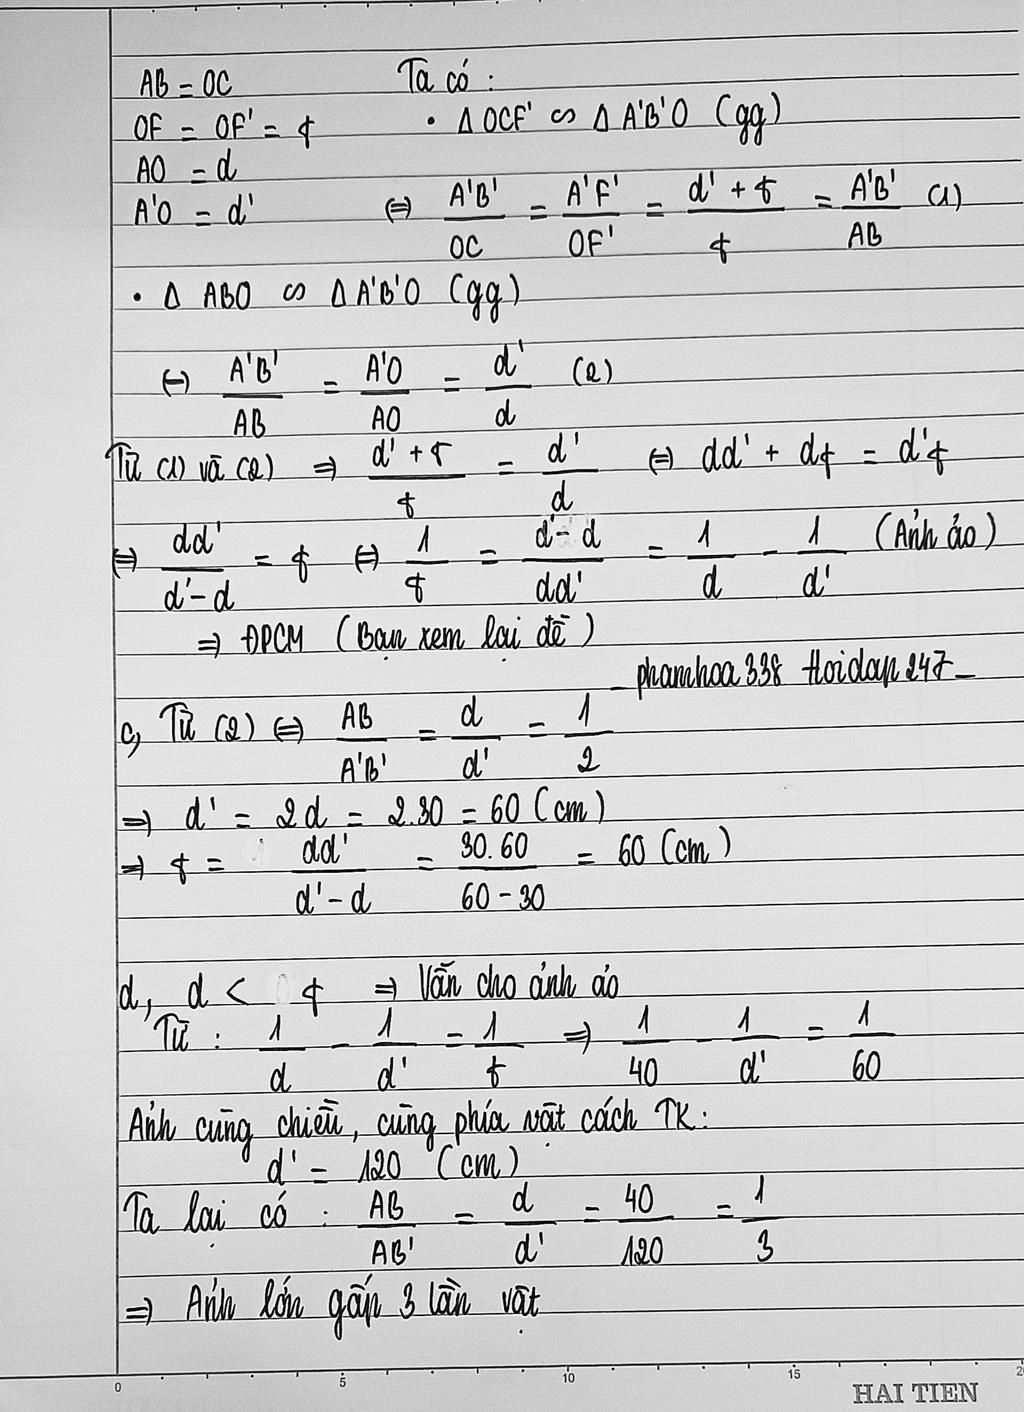 AB = OC Ta có :
OF = OF' = f • Δ OCF' ∽ Δ A'B'O (gg)
AO = d
A'O = d' ⇔ A'B'/OC = A'F'/OF' = (d' + f)/f = A'B'/AB (1)
• Δ ABO ∽ Δ A'B'O (gg)
⇔ A'B'/AB = A'O/AO = d'/d (2)
Từ (1) và (2) ⇒ (d' + f)/f = d'/d ⇔ dd' + df = d'f
⇔ dd'/(d'-d) = f ⇔ 1/f = (d'-d)/dd' = 1/d - 1/d' (Ảnh ảo)
⇒ ĐPCM (Bạn xem lại đề)
_phamhoa338 Hoidap247_
c, Từ (2) ⇔ AB/A'B' = d/d' = 1/2
⇒ d' = 2d = 2.30 = 60 (cm)
⇒ f = dd'/(d'-d) = 30.60/(60-30) = 60 (cm)
d, d < f ⇒ Vẫn cho ảnh ảo
Từ : 1/d - 1/d' = 1/f ⇒ 1/40 - 1/d' = 1/60
Ảnh cùng chiều, cùng phía vật cách TK:
d' = 120 (cm)
Ta lại có : AB/AB' = d/d' = 40/120 = 1/3
⇒ Ảnh lớn gấp 3 lần vật
0 5 10 15
HAI TIEN